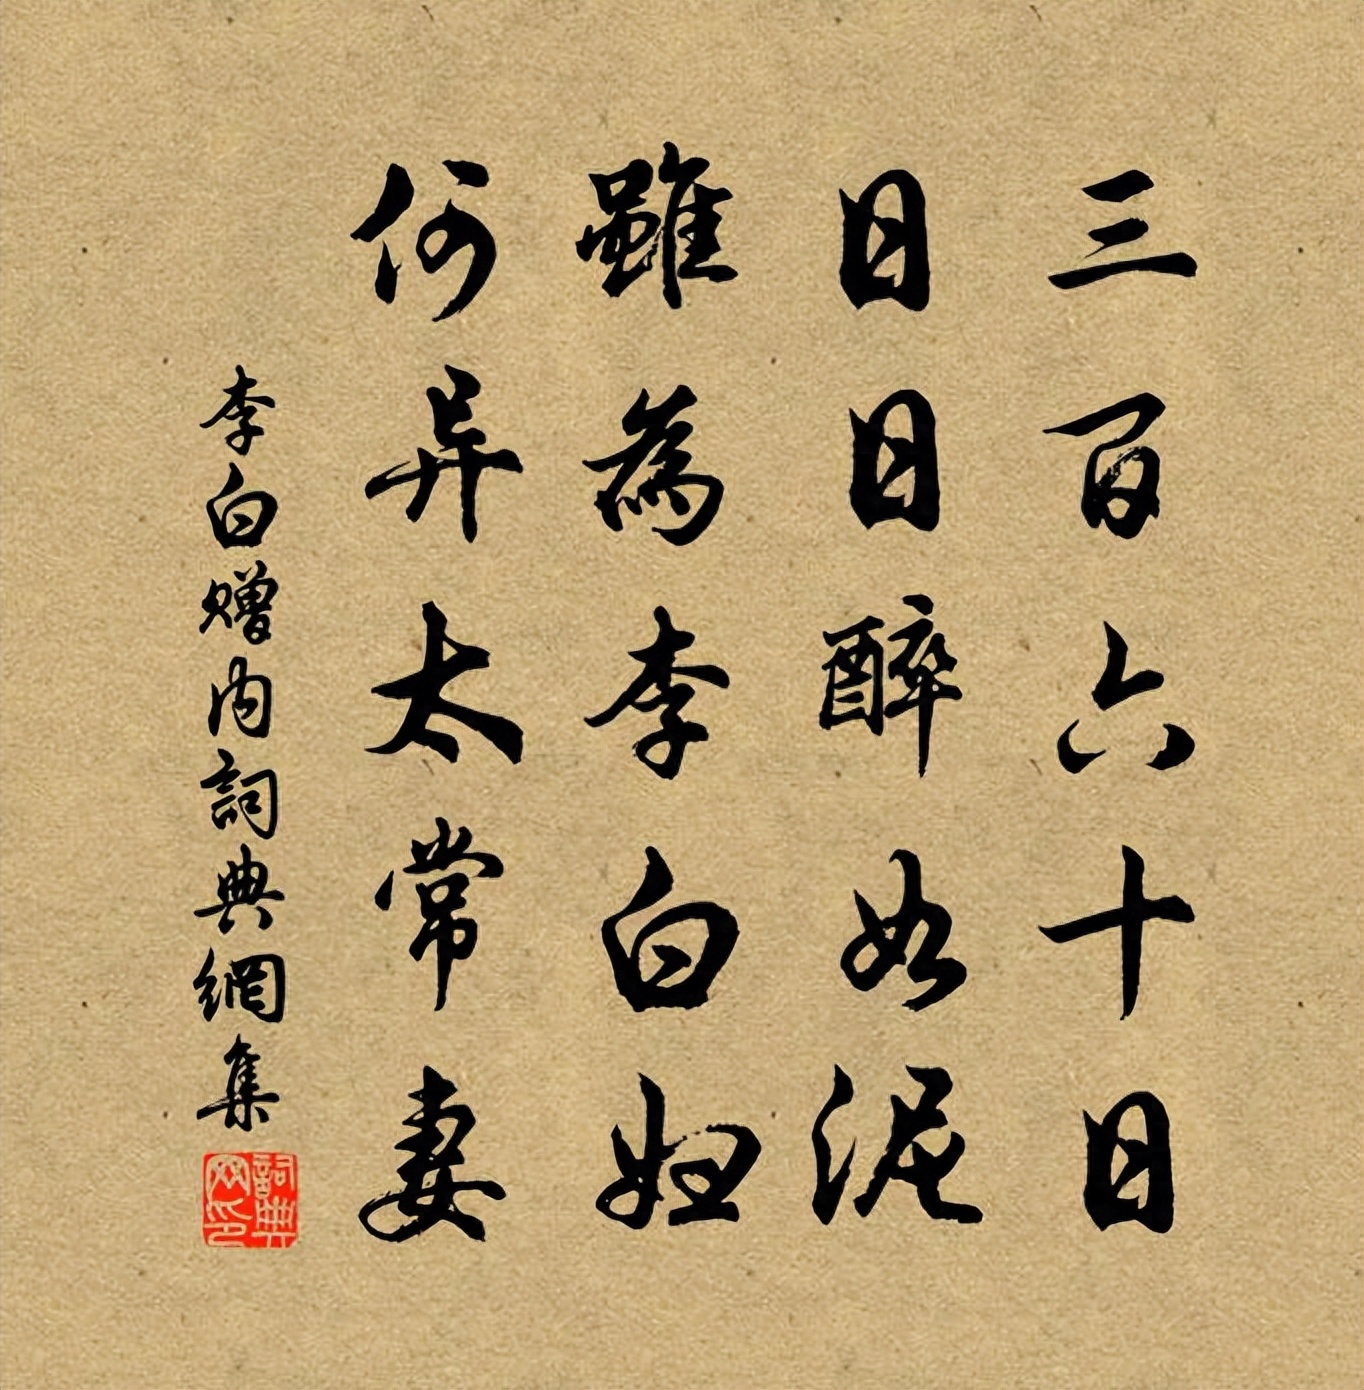 三百六十日
日日醉如泥
雖為李白妇
何异太常妻
李白赠内詞典網集
詞典
网印